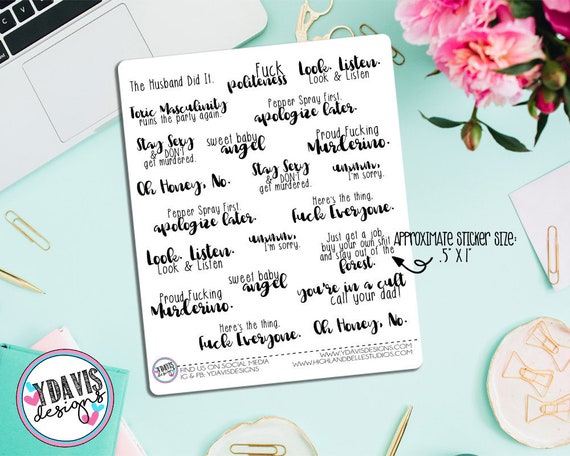 The Husband Did It.
Fuck
politeness
Look. Listen.
Look & Listen
Toxic Masculinity
ruins the party again.
Pepper Spray First,
apologize later.
Stay Sexy
& DON'T
get murdered.
sweet baby
angel
Proud Fucking
Murderino.
Oh Honey, No.
Stay Sexy
& DON'T
get murdered.
ummmm,
I'm sorry.
Pepper Spray First,
apologize later.
Here's the thing,
Fuck Everyone.
Look. Listen.
Look & Listen
ummmm,
I'm sorry.
Just get a job,
buy your own shit
and stay out of the
forest.
APPROXIMATE STICKER SIZE:
.5" X 1"
Proud Fucking
Murderino.
sweet baby
angel
you're in a cult
call your dad!
Here's the thing,
Fuck Everyone.
Oh Honey, No.
YDAVIS
designs
FIND US ON SOCIAL MEDIA
IG & FB: YDAVISDESIGNS
WWW.YDAVISDESIGNS.COM
WWW.HIGHLANDBELLESTUDIOS.COM
YDAVIS
designs